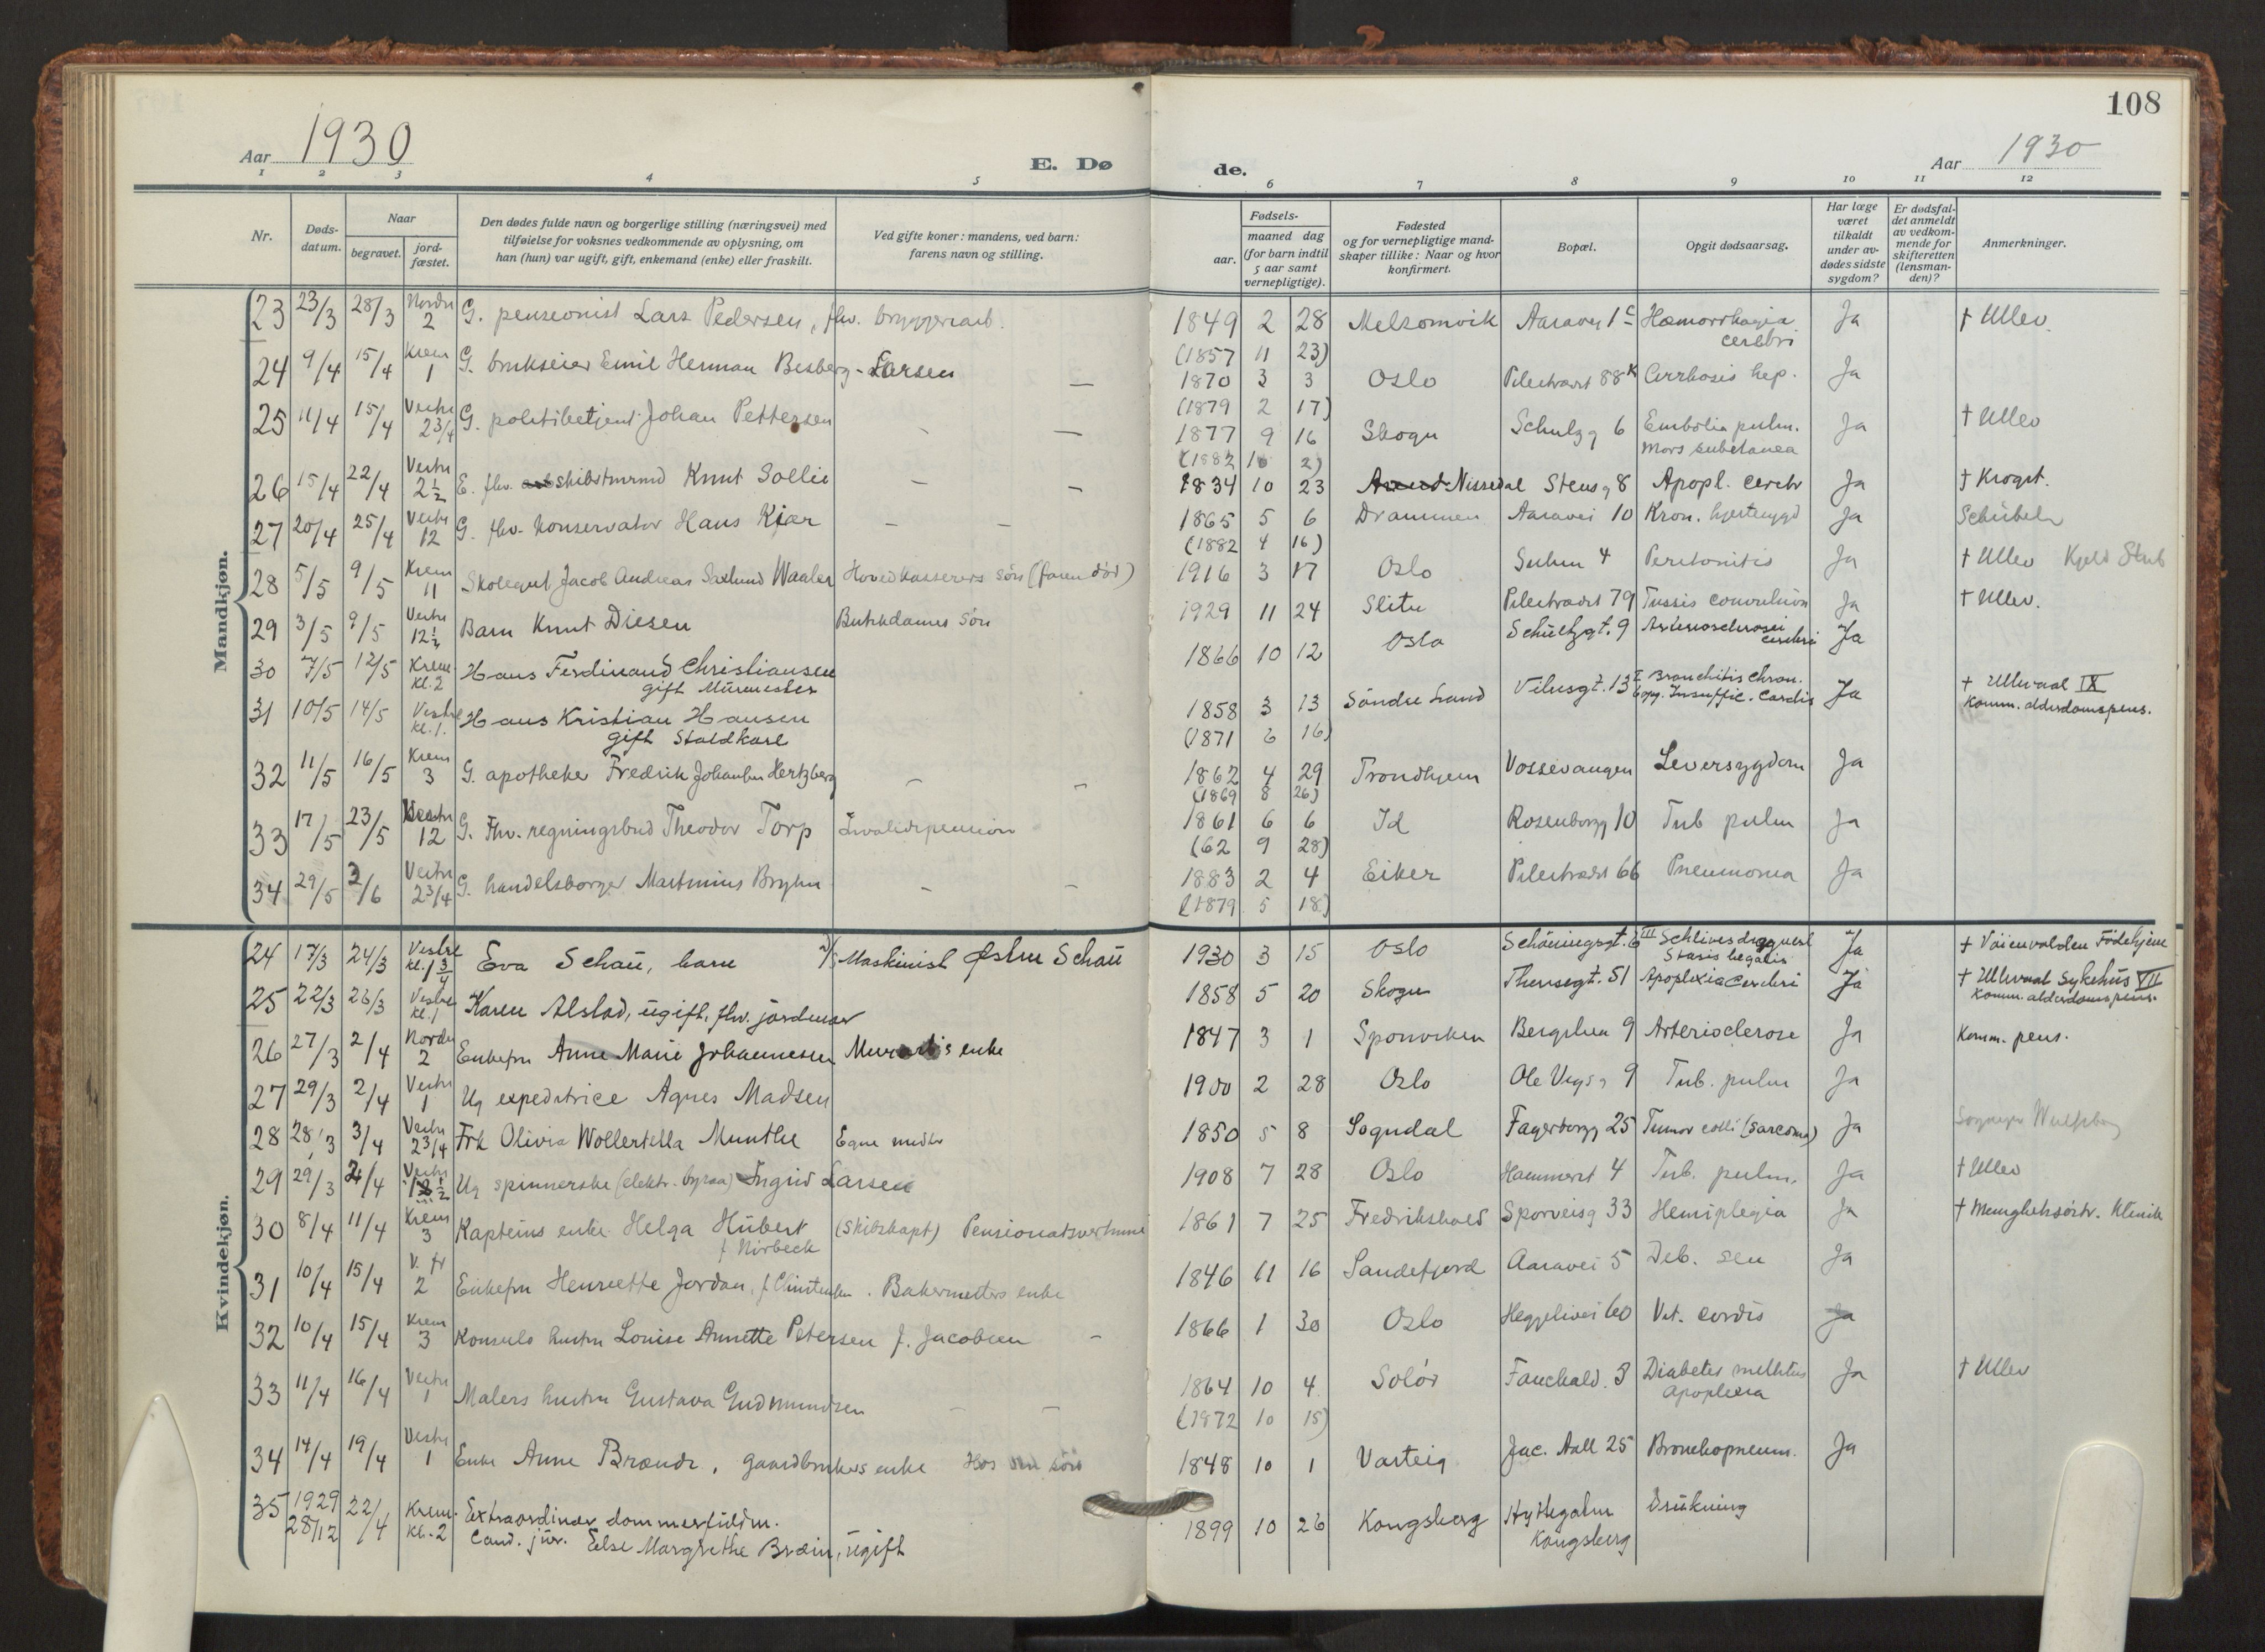 108
Aar 1930
E. Dø
de.
Aar 1930
1 2 3 4 5 6 7 8 9 10 11 12
Nr.
Døds-
datum.
Naar
begravet.
jord-
fæstet.
Den dødes fulde navn og borgerlige stilling (næringsvei) med
tilføielse for voksnes vedkommende av oplysning, om
han (hun) var ugift, gift, enkemand (enke) eller fraskilt.
Ved gifte koner: mandens, ved barn:
farens navn og stilling.
Fødsels-
aar.
maaned dag
(for barn indtil
5 aar samt
vernepligtige).
Fødested
og for vernepligtige mand-
skaper tillike: Naar og hvor
konfirmert.
Bopæl.
Opgit dødsaarsag.
Har læge
været
tilkaldt
under av-
dødes sidste
sygdom?
Er dødsfal-
det anmeldt
av vedkom-
mende for
skifteretten
(lensman-
den)?
Anmerkninger.
Mandkjøn.
23 23/3 28/3 Nordre 2 G. pensionist Lars Pedersen, fhv. bryggeriarb. 1849 2 28 Melsomvik Aaravei 1c Hæmorrhagia cerebri Ja † Ullev.
(1857 11 23)
24 9/4 15/4 Krem 1 G. brukseier Emil Herman Besberg-Larsen — 1870 3 3 Oslo Pilestradet 88k Cirrhosis hep. Ja
(1879 2 17)
25 11/4 15/4 Vestre 2 3/4 G. politibetjent Johan Pettersen - — 1877 9 16 Skogn Schulzg 6 Embolia pulm. Mors subetanea Ja † Ullev
(1882 10 2)
26 15/4 22/4 Vestre 2 1/2 E. fhv. skibstmrmd Knut Sollie - - 1834 10 23 Nissedal Stensg 8 Apopl. cerebr Ja † Krogst.
27 20/4 25/4 Vestre 12 G. fhv. konservator Hans Kiær - - 1865 5 6 Drammen Aaravei 10 Kron. hjertesygd Ja Schübeler
(1882 4 16)
28 5/5 9/5 Krem 11 Skolegut Jacob Andreas Saxlund Waaler Hovedkasserers søn (faren død) 1916 3 17 Oslo Suhm 4 Peritonitis Ja † Ullev Kjeld Stub
29 3/5 9/5 Vestre 12 1/2 Barn Knut Diesen Butikdames søn 1929 11 24 Slitu Pilestradet 79 Tussis convulsiva Ja † Ullev.
30 7/5 12/5 Krem. kl. 2 Hans Ferdinand Christiansen gift Murmester 1866 10 12 Oslo Schultzgt. 9 Arteriosclerosei cerebri Ja
31 10/5 14/5 Vestre kl. 1. Hans Kristian Hansen gift Staldkarl 1858 3 13 Søndre Land Vibesgt. 13 Bronchitis chron. Insuffic. Cardis Ja † Ullevaal IX Komm. alderdomspens.
(1871 6 16)
32 11/5 16/5 Krem 3 G. apotheker Fredrik Johansen Hertzberg - - 1862 4 29 Trondhjem Vossevangen Leversygdom Ja
(1869 8 26)
33 17/5 23/5 Vestre 12 G. Fhv. regningsbud Theodor Torp Invalidepension 1861 6 6 Id Rosenborgg 10 Tub pulm Ja
(62 9 28)
34 29/5 3/6 Vestre 2 3/4 G. handelsborger Martinius Bryhn - - 1883 2 4 Eiker Pilestradet 66 Pneumonia Ja
(1879 5 18)
Kvindekjøn.
24 17/3 24/3 Vestre kl. 1 3/4 Eva Schau, barn Maskinist Østen Schau 1930 3 15 Oslo Schöningsgt. 6 III Stasis hepatis Ja † Vaienvolden Fødehjem
25 22/3 26/3 Vestre kl. 1 Karen Alstad, ugift, fhv. jordmor 1858 5 20 Skogn Theresegt. 51 Apoplexia Cerebri Ja † Ullevaal Sykehus VII Komm. alderdomspens.
26 27/3 2/4 Nordre 2 Enkefru Anne Marie Johannesen enke 1847 3 1 Sponviken Bergslien 9 Arteriosclerose Ja Komm. pens.
27 29/3 2/4 Vestre 1 Ug expeditrice Agnes Madsen 1900 2 28 Oslo Ole Vigsg 9 Tub. pulm Ja
28 28/3 3/4 Vestre 2 3/4 Frk Olivia Wollertella Munthe Egne midler 1850 5 8 Sogndal Fagerborgg 25 Tumor colli (Sarcoma) Ja
29 29/3 4/4 Vestre Ug spinnerske (elektr. byraa) Ingrid Larsen 1908 7 28 Oslo Hammerst 4 Tub. pulm. Ja † Ullev
30 8/4 11/4 Krem 3 Kapteins enke Helga Hübert f Nirbeck (skibskapt) Pensionatsvertinne 1861 7 25 Fredrikshald Sporveisg 33 Hemiplegia Ja † Menighetssøstr. Klinik
31 10/4 15/4 V. Kr 2 Enkefru Henriette Jordan, f Christensen. Bakermesters enke 1846 11 16 Sandefjord Aaravei 5 Deb. sen Ja
32 10/4 15/4 Krem 3 Konsuls hustru Louise Annette Petersen f. Jacobsen - 1866 1 30 Oslo Heggelivei 60 Vit. cordis Ja
33 11/4 16/4 Vestre 1 Malers hustru Gustava Gudmundsen - - 1864 10 4 Solør Fauchald. 3 Diabetes mellitus apoplexia Ja † Ullev
(1872 10 15)
34 14/4 19/4 Vestre 1 Enke Anne Brænde, gaardbrukers enke Hos sin søn 1848 10 1 Varteig Jac. Aall 25 Bronchopneum. Ja
35 1929 28/12 22/4 Krem. kl. 2 Extraordinær dommerfuldm. Cand. jur. Else Margrethe Bræin, ugift 1899 10 26 Kongsberg Hyttegaten Kongsberg Drukning